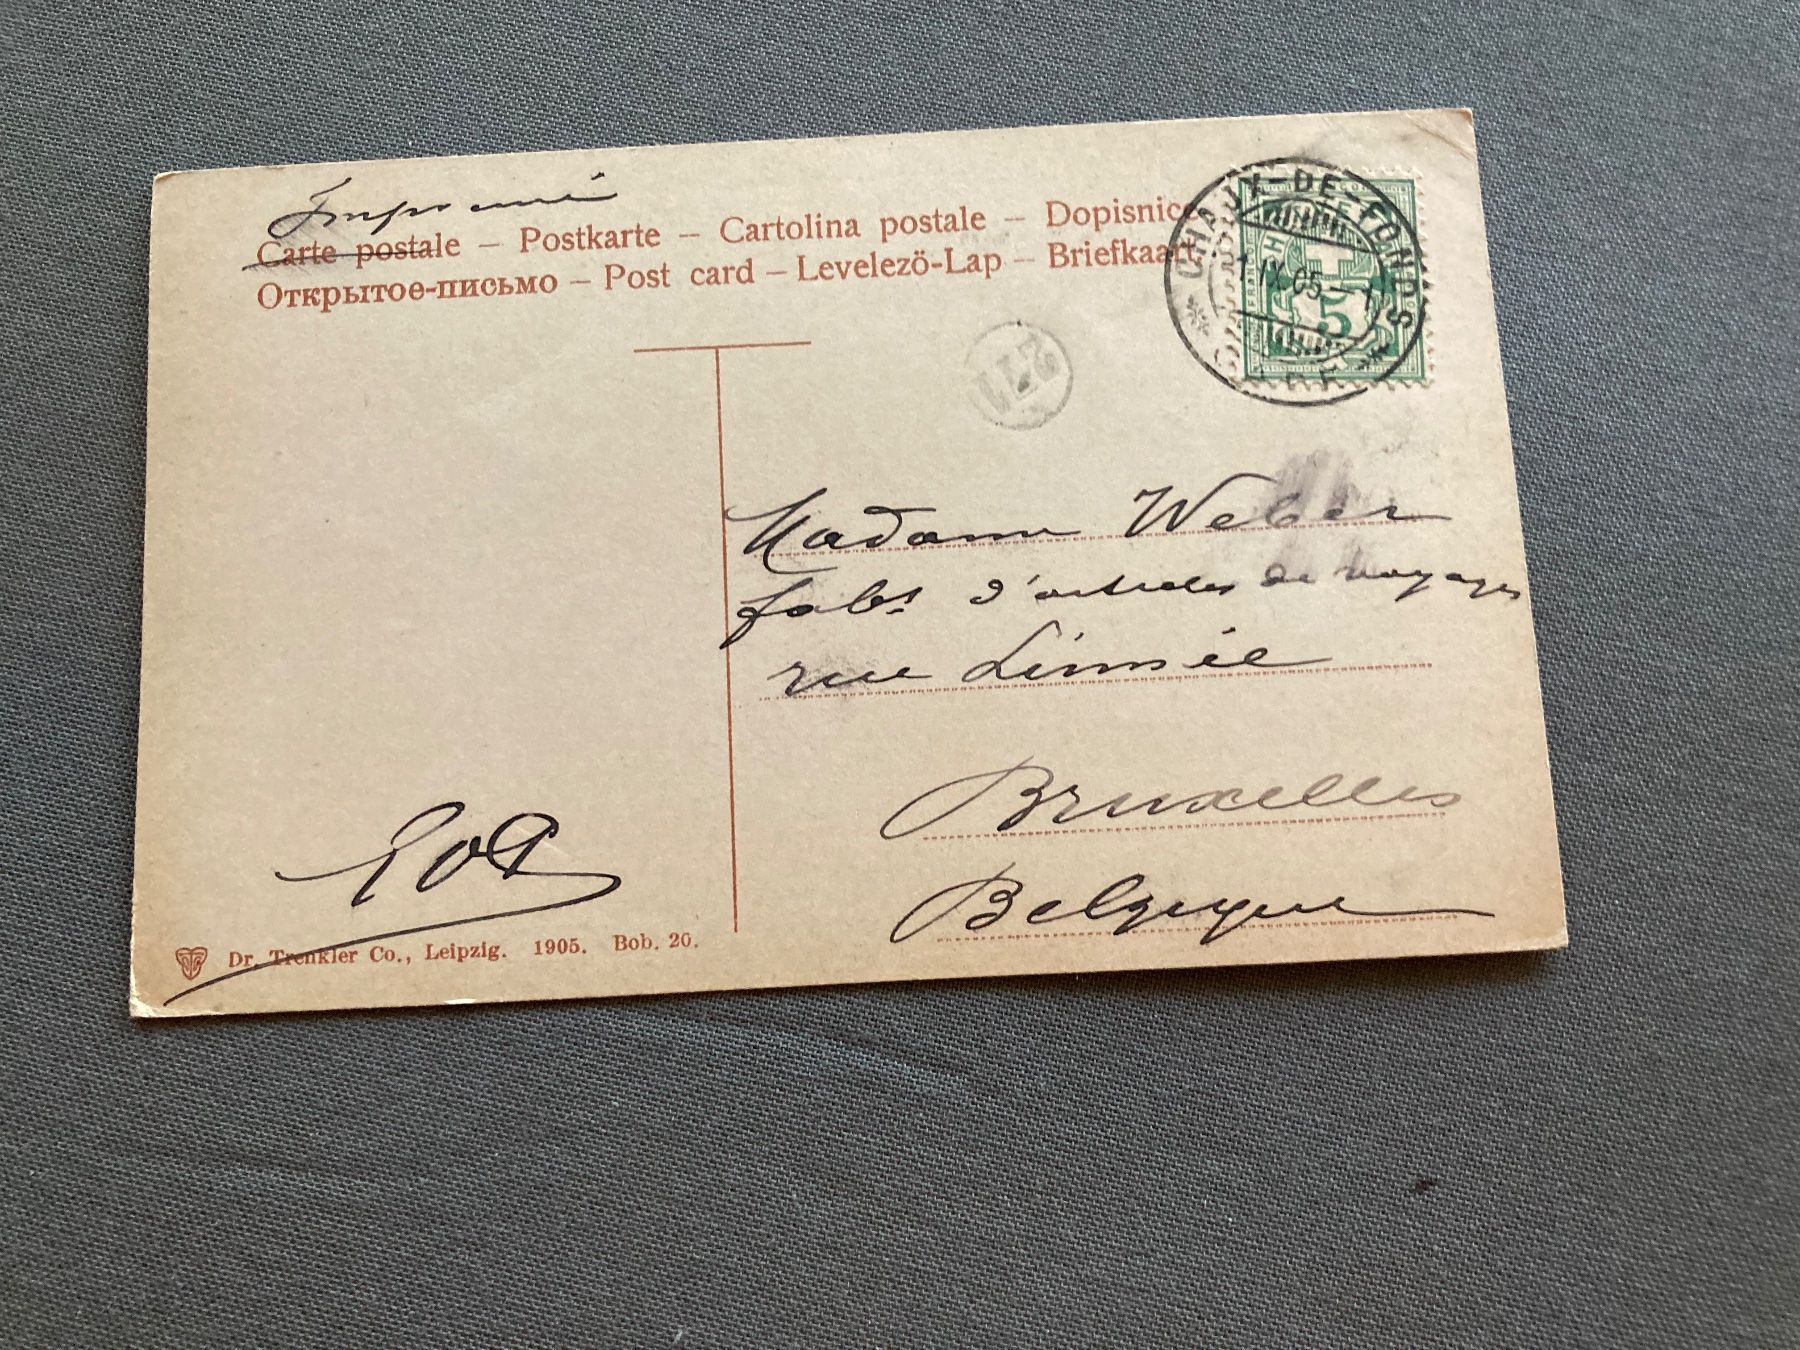 Imprimé
Carte postale – Postkarte – Cartolina postale – Dopisnice
Открытое-письмо – Post card – Levelezö-Lap – Briefkaart
CHAUX-DE-FONDS
1 IX 05 – 1
HELVETIA
FRANCO
5
Madame Weber
fabt d'articles de voyages
rue Linnée
Bruxelles
Belgique
Dr. Trenkler Co., Leipzig. 1905. Bob. 20.